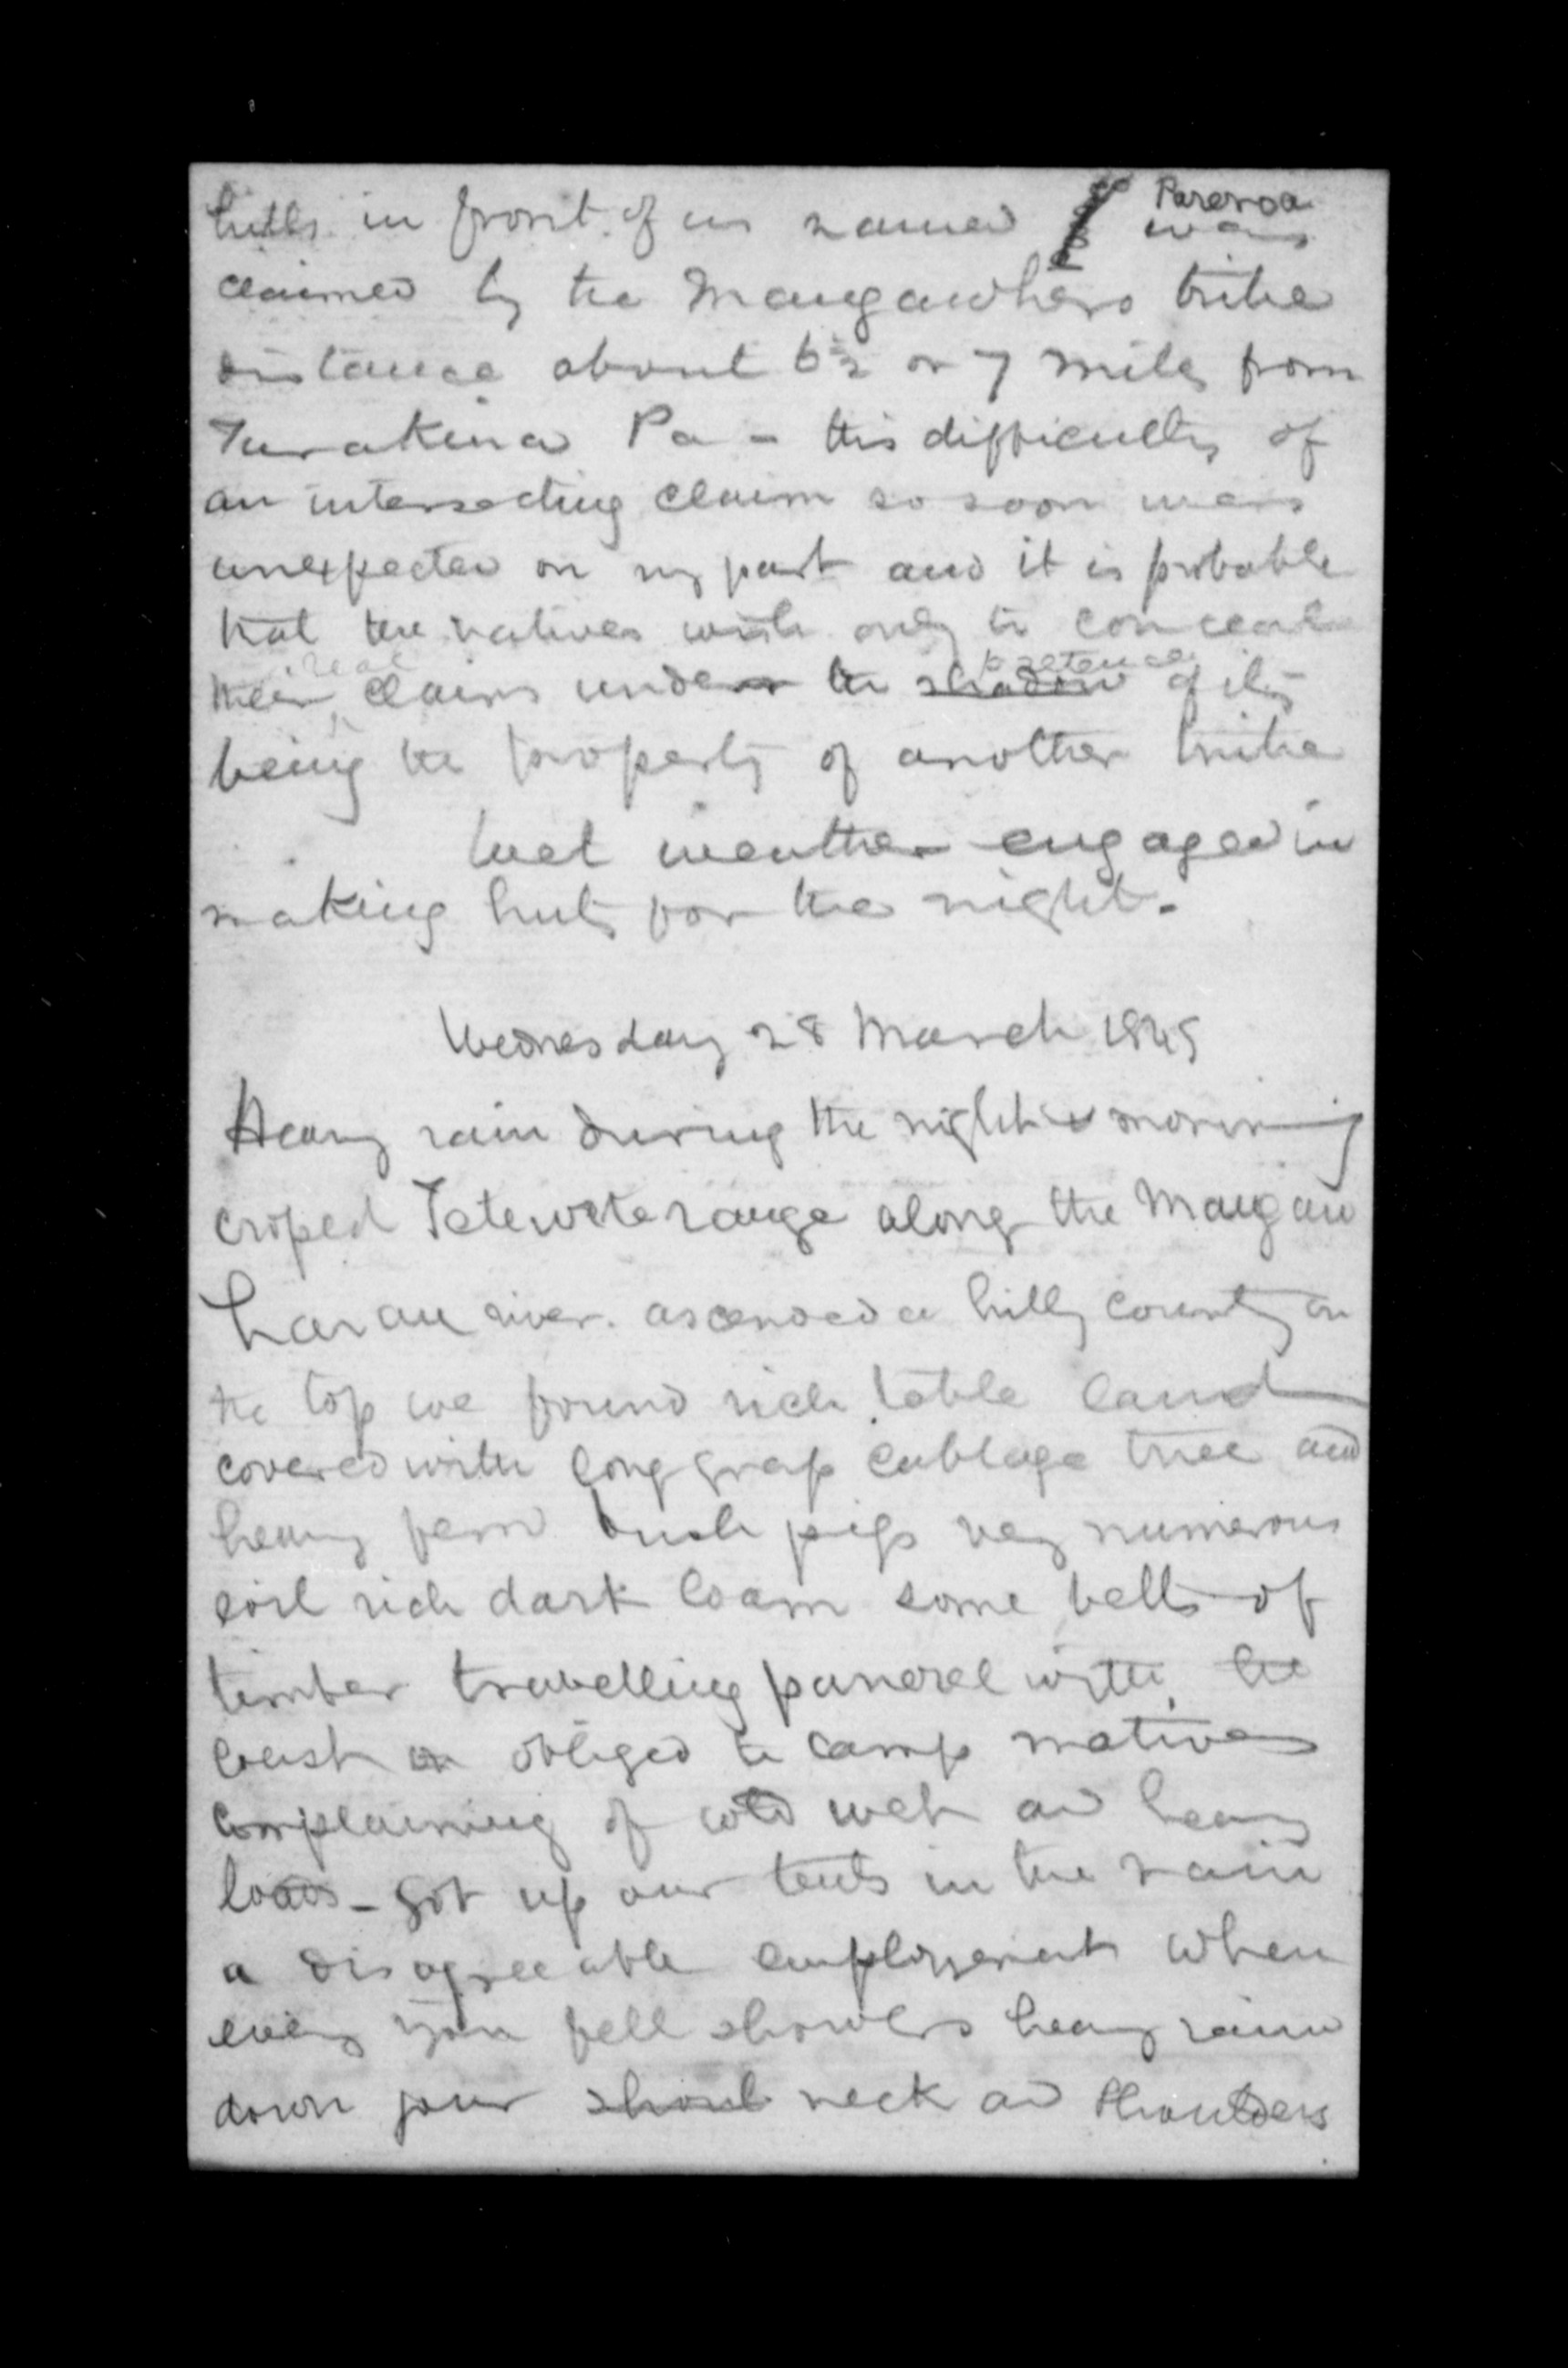 hills in front of us named Pareroa was
claimed by the Mangawhero tribe
distance about 6½ or 7 miles from
Turakina Pa - this difficulty of
an intersecting claim so soon was
unexpected on my part and it is probable
that the natives wish only to conceal
their real claims under the shadow pretence of its
being the property of another tribe
Wet weather engaged in
making huts for the night.
Wednesday 28 March 1849
Heavy rain during the night & morning
crossed range along the Mangaw
harau river. ascended a hilly country on
the top we found rich table land
covered with long grass cabbage tree and
heavy fern bush pigs very numerous
soil rich dark loam some belts of
timber travelling with the
coast obliged to camp natives
complaining of cold wet and heavy
loads - got up our tents in the rain
a disagreeable employment when
every you fell showers heavy rain
down your neck and shoulders